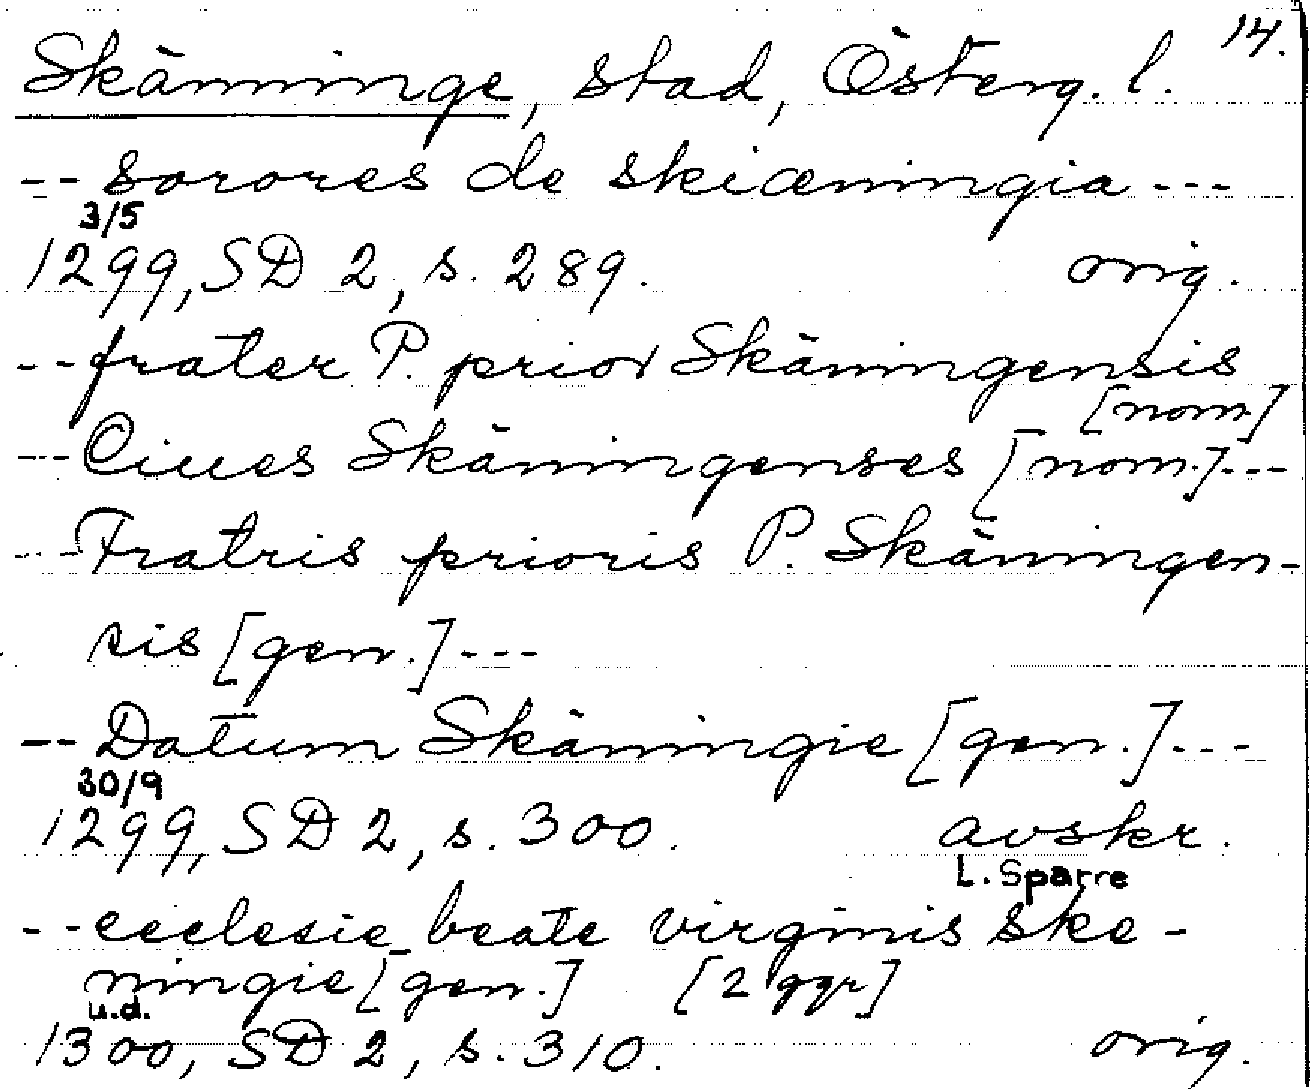 14.
Skänninge, stad, Österg. l.
-- sorores de skiæningia ---
3/5
1299, SD 2, s. 289. orig.
-- frater P. prior Skäningensis
[nom.]
--- Ciues Skäningenses [nom.]---
--- Fratris prioris P. Skäningen-
sis [gen.]---
-- Datum Skäningie [gen.]---
30/9
1299, SD 2, s. 300. avskr.
L. Sparre
-- ecclesie beate virginis ske-
ningie [gen.] [2 ggr]
u.d.
1300, SD 2, s. 310. orig.